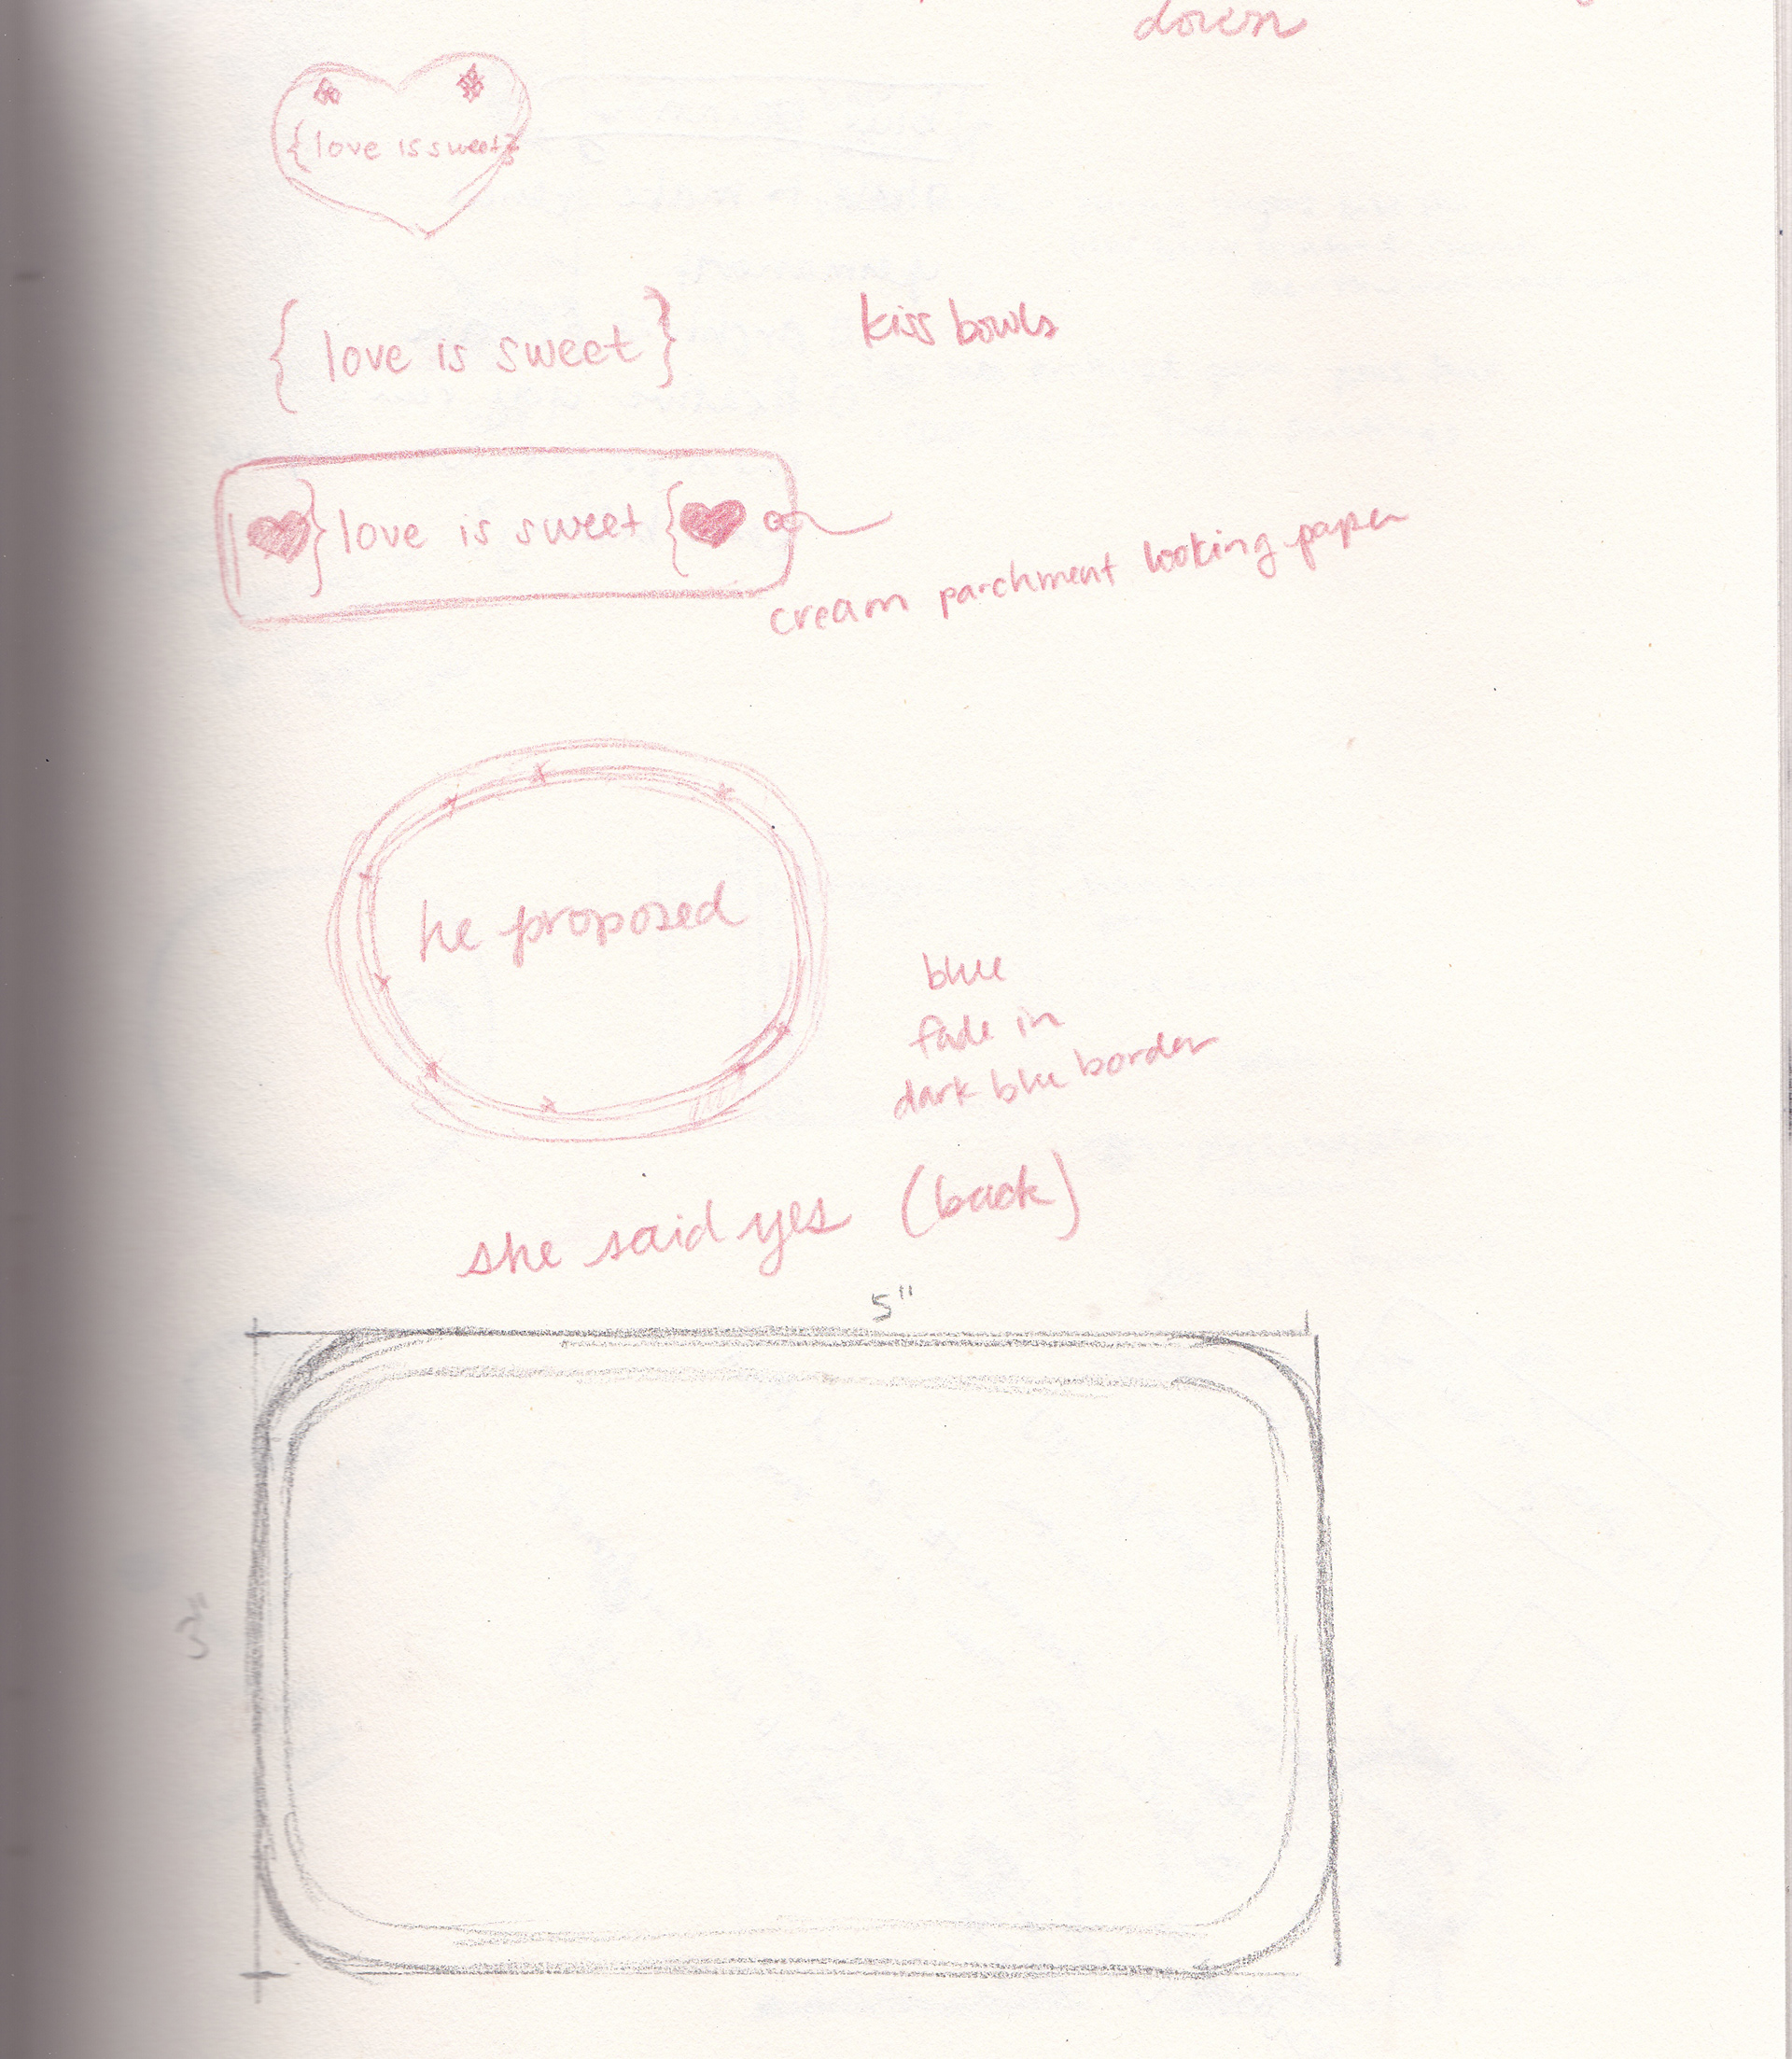 down
{love is sweet}
{ love is sweet }
kiss bowls
} love is sweet {
cream parchment looking paper
he proposed
blue
fade in
dark blue border
she said yes (back)
5"
3"